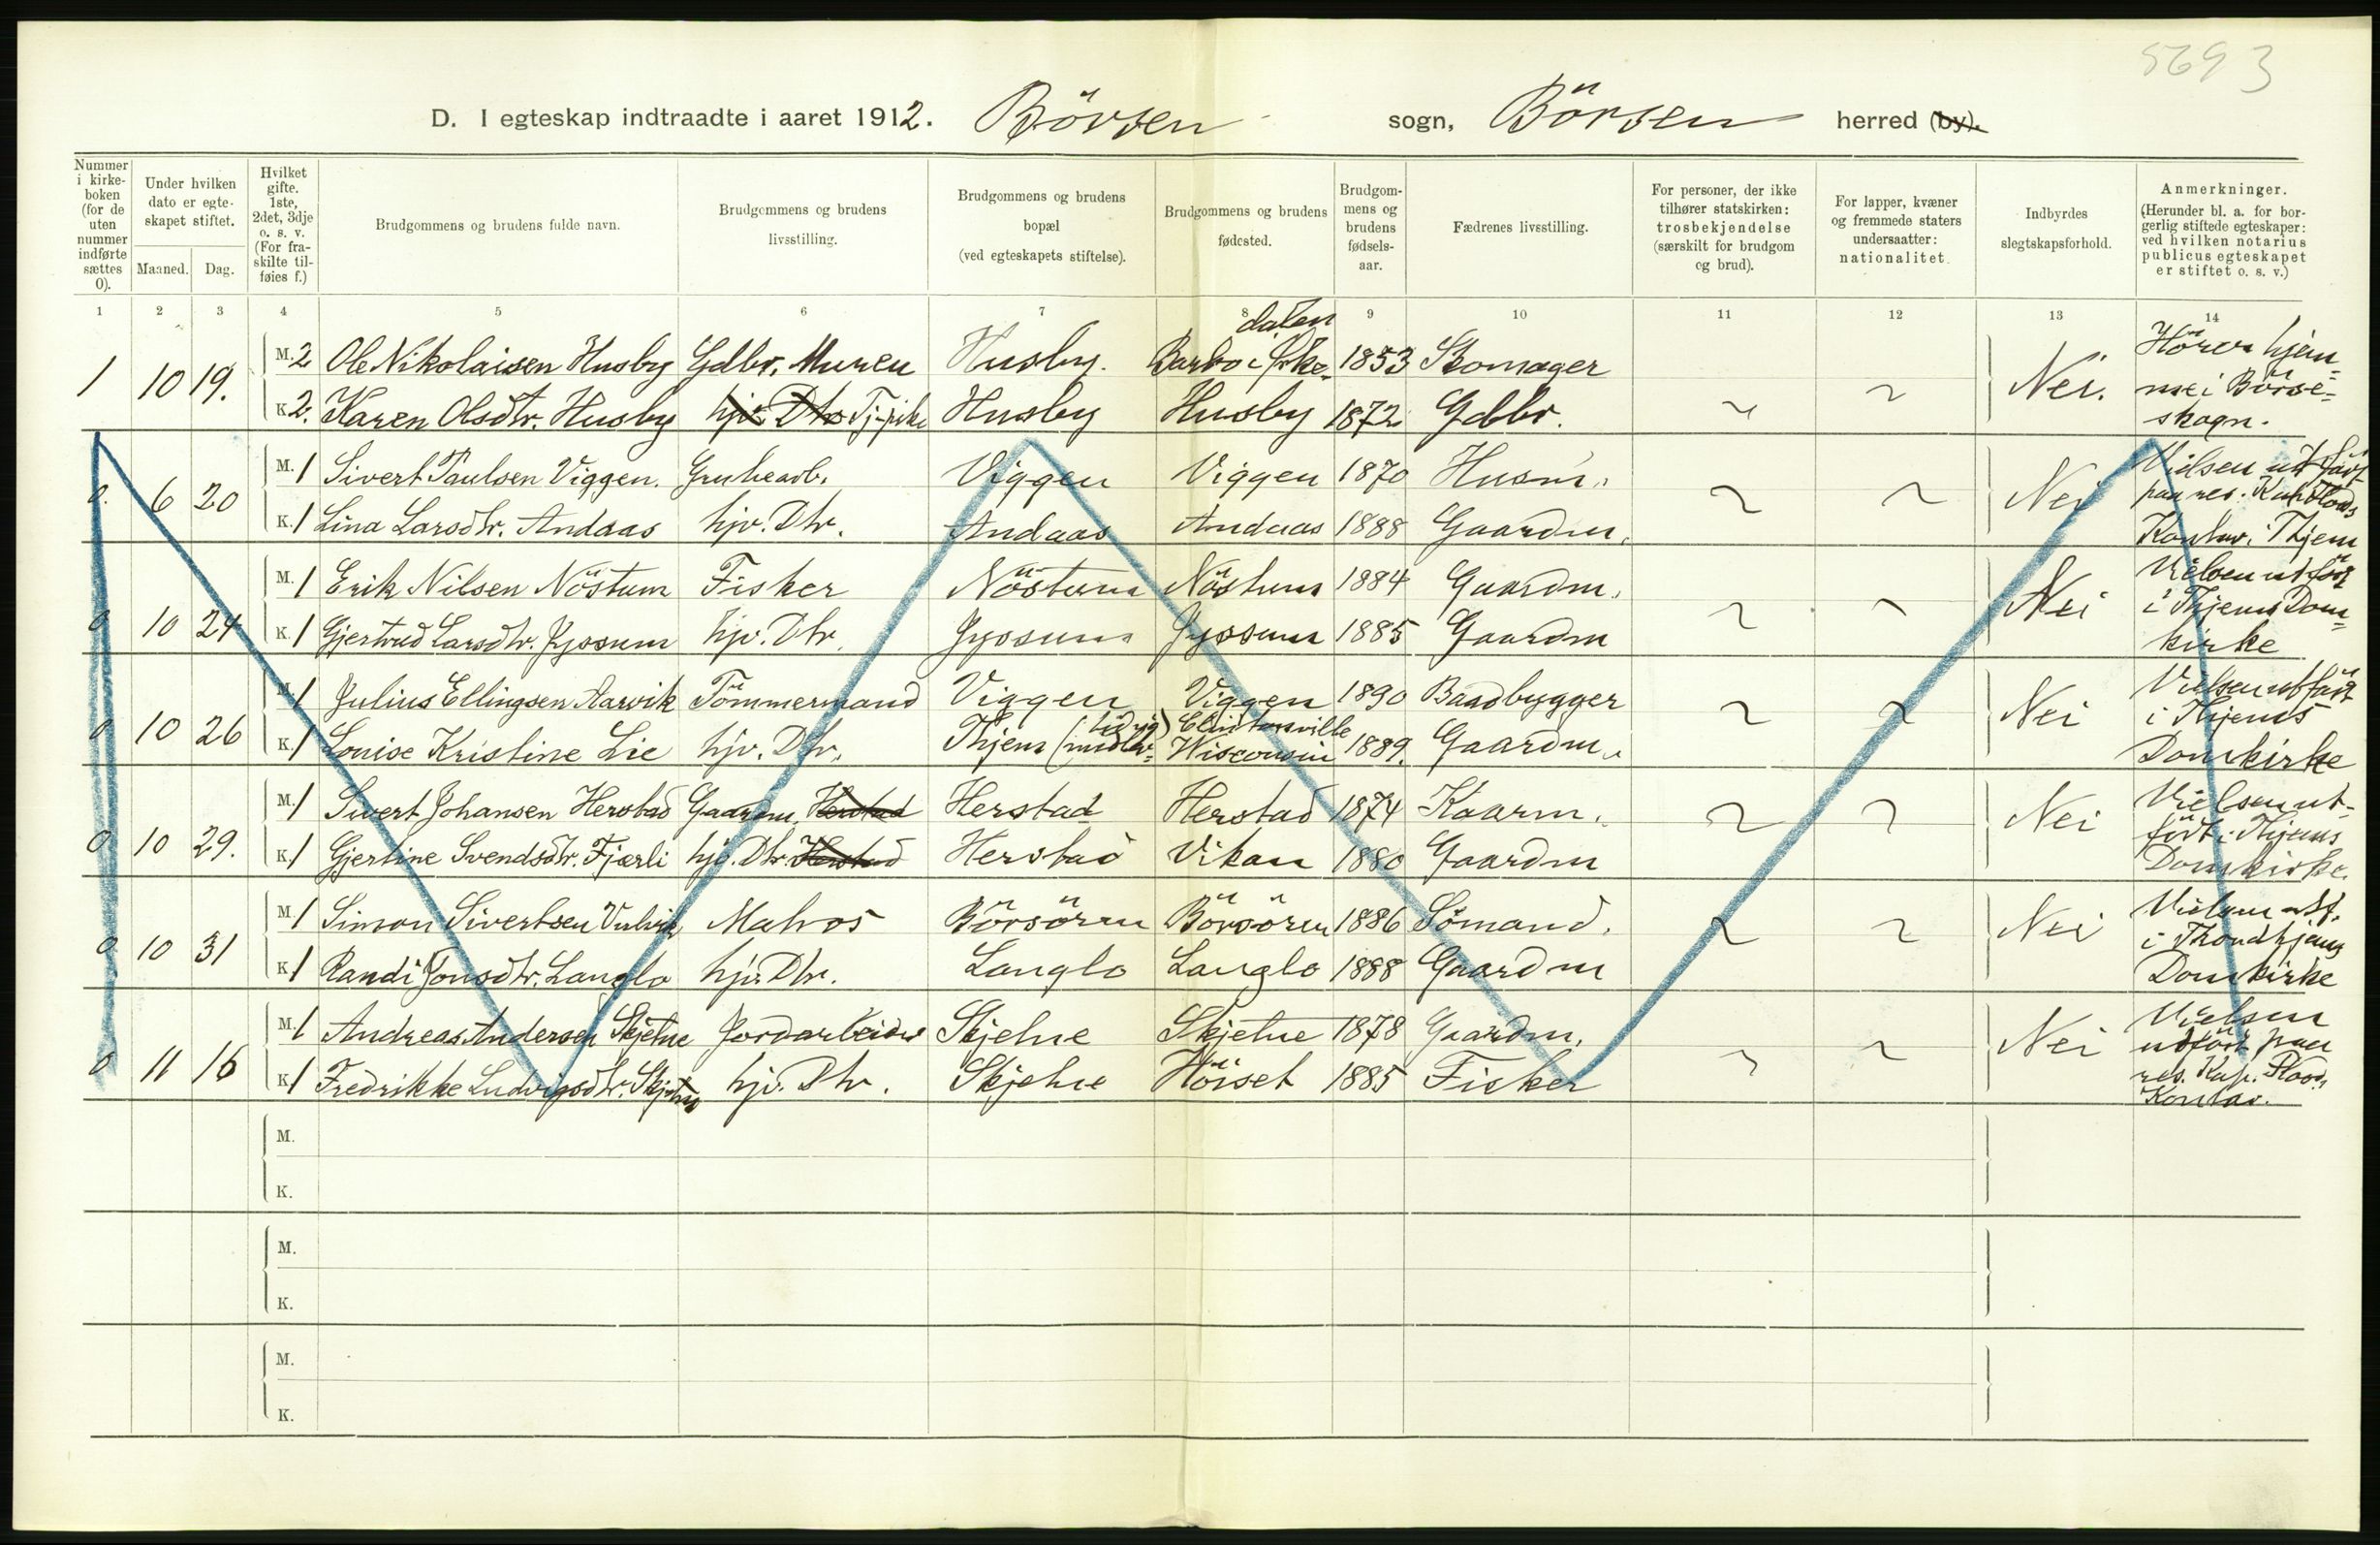 5693
D. I egteskap indtraadte i aaret 1912. Börsen sogn, Börsen herred (by).
Nummer i kirke-boken (for de uten nummer indførte sættes 0).
Under hvilken dato er egte-skapet stiftet.
Maaned. Dag.
Hvilket gifte. 1ste, 2det, 3dje o. s. v. (For fra-skilte til-føies f.)
Brudgommens og brudens fulde navn.
Brudgommens og brudens livsstilling.
Brudgommens og brudens bopæl (ved egteskapets stiftelse).
Brudgommens og brudens fødested.
Brudgom-mens og brudens fødsels-aar.
Fædrenes livsstilling.
For personer, der ikke tilhører statskirken: trosbekjendelse (særskilt for brudgom og brud).
For lapper, kvæner og fremmede staters undersaatter: nationalitet.
Indbyrdes slegtskapsforhold.
Anmerkninger. (Herunder bl. a. for bor-gerlig stiftede egteskaper: ved hvilken notarius publicus egteskapet er stiftet o. s. v.)
1 2 3 4 5 6 7 8 9 10 11 12 13 14
1 10 19. M. 2 Ole Nikolaisen Husby Gdbr. Murer Husby. 1853 Skomager Nei. Hörer hjem-
K. 2. Karen Olsdtr. Husby hjv. Dtr Husby Husby 1872 Gdbr. me i Börse-
skogn.
0. 6 20 M. 1 Sivert Paulsen Viggen. Grubearb. Viggen Viggen 1870 Husm. Nei Vielsen utfört
K. 1 Lina Larsdtr. Andaas hjv. Dtr. Andaas Andaas 1888 Gaardm. paa res. Kap. Floods
Kontor i Thjem
0 10 24 M. 1 Erik Nilsen Nöstum Fisker Nöstum Nöstum 1884 Gaardm. Nei Vielsen utfört
K. 1 Gjertrud Larsdtr. Gjossum hjv. Dtr. 1885 Gaardm i Thjems Dom-
kirke
0 10 26 M. 1 Julius Ellingsen Aarvik Tömmermand Viggen Viggen 1890 Baadbygger Nei Vielsen utfört
K. 1 Louise Kristine Lie hjv. Dtr. Thjem Clintonville Wisconsin 1889. Gaardm. i Thjems
Domkirke
0 10 29. M. 1 Sivert Johansen Herstad Gaardm. Herstad Herstad Herstad 1874 Kaarm. Nei Vielsen ut-
K. 1 Gjertine Svendsdtr. Fjærli hjv. Dtr. Herstad Herstad Vikan 1880 Gaardm fört i Thjems
Domkirke.
0 10 31 M. 1 Simon Sivertsen Matros Börsören Börsören 1886 Sömand. Nei Vielsen utf.
K. 1 Randi Jonsdtr. Langlo hjv. Dtr. Langlo Langlo 1888 Gaardm i Trondhjems
Domkirke
0 11 16 M. 1 Andreas Andersen Skjetne Jordarbeider Skjetne Skjetne 1878 Gaardm. Nei Vielsen
K. 1 Fredrikke Ludvigsdtr. Skjetne hjv. Dtr. Skjetne Höiset 1885 Fisker utfört paa
res. Kap. Floods
Kontor.
M.
K.
M.
K.
M.
K.